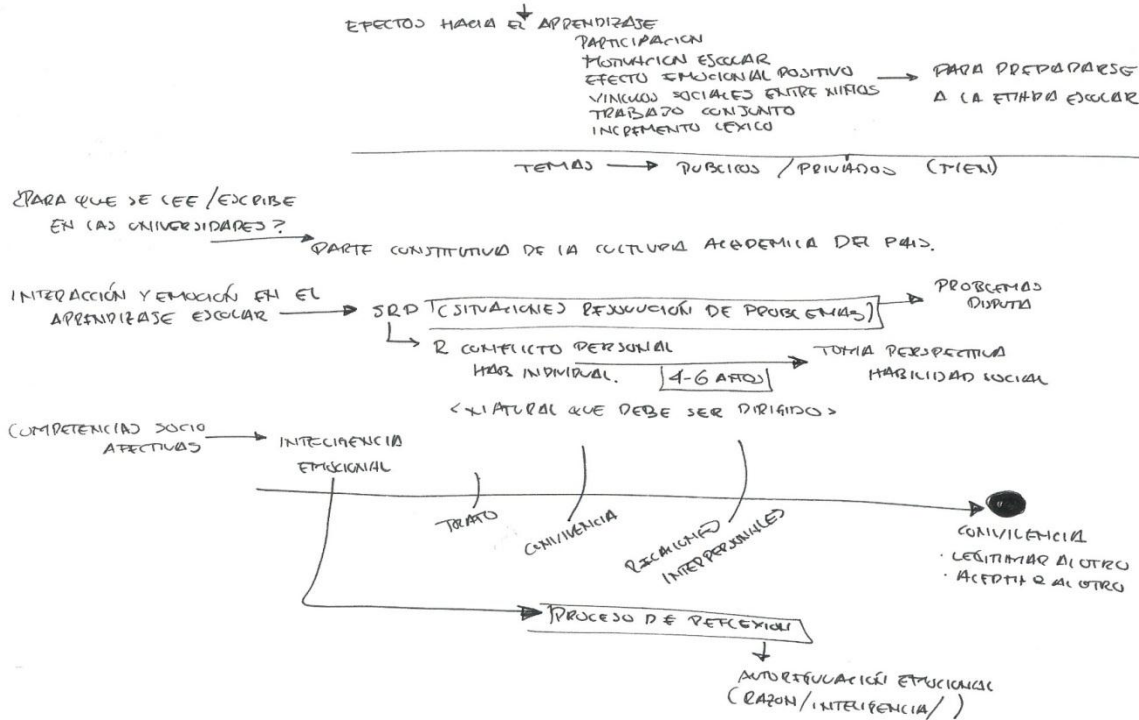 EFECTOS HACIA EL APRENDIZAJE
PARTICIPACION
MOTIVACION ESCOLAR
EFECTO EMOCIONAL POSITIVO
VINCULOS SOCIALES ENTRE NIÑOS
TRABAJO CONJUNTO
INCREMENTO LEXICO
PARA PREPARARSE
A LA ETAPA ESCOLAR
TEMAS PUBLICOS / PRIVADOS
¿PARA QUE SE LEE / ESCRIBE
EN LAS UNIVERSIDADES?
PARTE CONSTITUTIVA DE LA CULTURA ACADEMICA DEL PAIS.
INTERACCIÓN Y EMOCIÓN EN EL
APRENDIZAJE ESCOLAR
SRP (SITUACIONES RESOLUCIÓN DE PROBLEMAS)
PROBLEMAS
DISPUTA
R CONFLICTO PERSONAL
HAB INDIVIDUAL.
4-6 AÑOS
TOMA PERSPECTIVA
HABILIDAD SOCIAL
<NATURAL QUE DEBE SER DIRIGIDO>
COMPETENCIAS SOCIO
AFECTIVAS
INTELIGENCIA
EMOCIONAL
TRATO
CONVIVENCIA
RELACIONES
INTERPERSONALES
CONVIVENCIA
· LEGITIMAR AL OTRO
· ACEPTAR AL OTRO
PROCESO DE REFLEXION
AUTORREGULACIÓN EMOCIONAL
(RAZON/INTELIGENCIA/ )